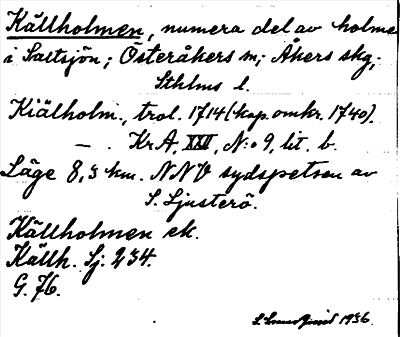 Källholmen, numera del av holme
i Saltsjön; Österåkers sn; Åkers skg;
Sthlms l.
Kiälholm., trol. 1714 (kop. omkr. 1740).
— . KrA, XXI, N:o 9, lit. b.
Läge 8,3 km. NNV sydspetsen av
S. Ljusterö.
Källholmen ek.
Källh. Sj. 234.
G. 76.
1936